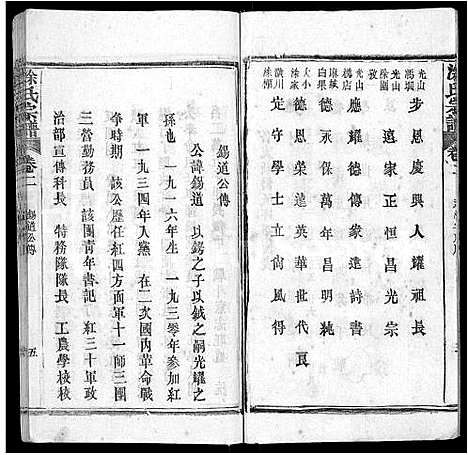 涂氏宗譜
卷二
光山 馮塆 步恩慶興人耀祖長
光山 涂塆 孜 忠正恒昌光宗
光山 磚店 應耀德傳繼詩書
麻城 白果 承德永萬年昌明
大小 涂家 德恩榮達英華世代良
潢川 涂塆 定守學士立尚風得
涂氏宗譜
卷二
錫道公傳
五
錫道公傳
公諱錫道以錫之子以鉞之嗣光耀之
孫也一九一六年生一九三零年參加紅
軍一九三四年入黨在二次國內革命戰
爭時期該公歷任紅四方面軍十一師三團
三營勤務員該團青年書記紅三十軍政
治部宣傳科長特務隊隊長工農學校校